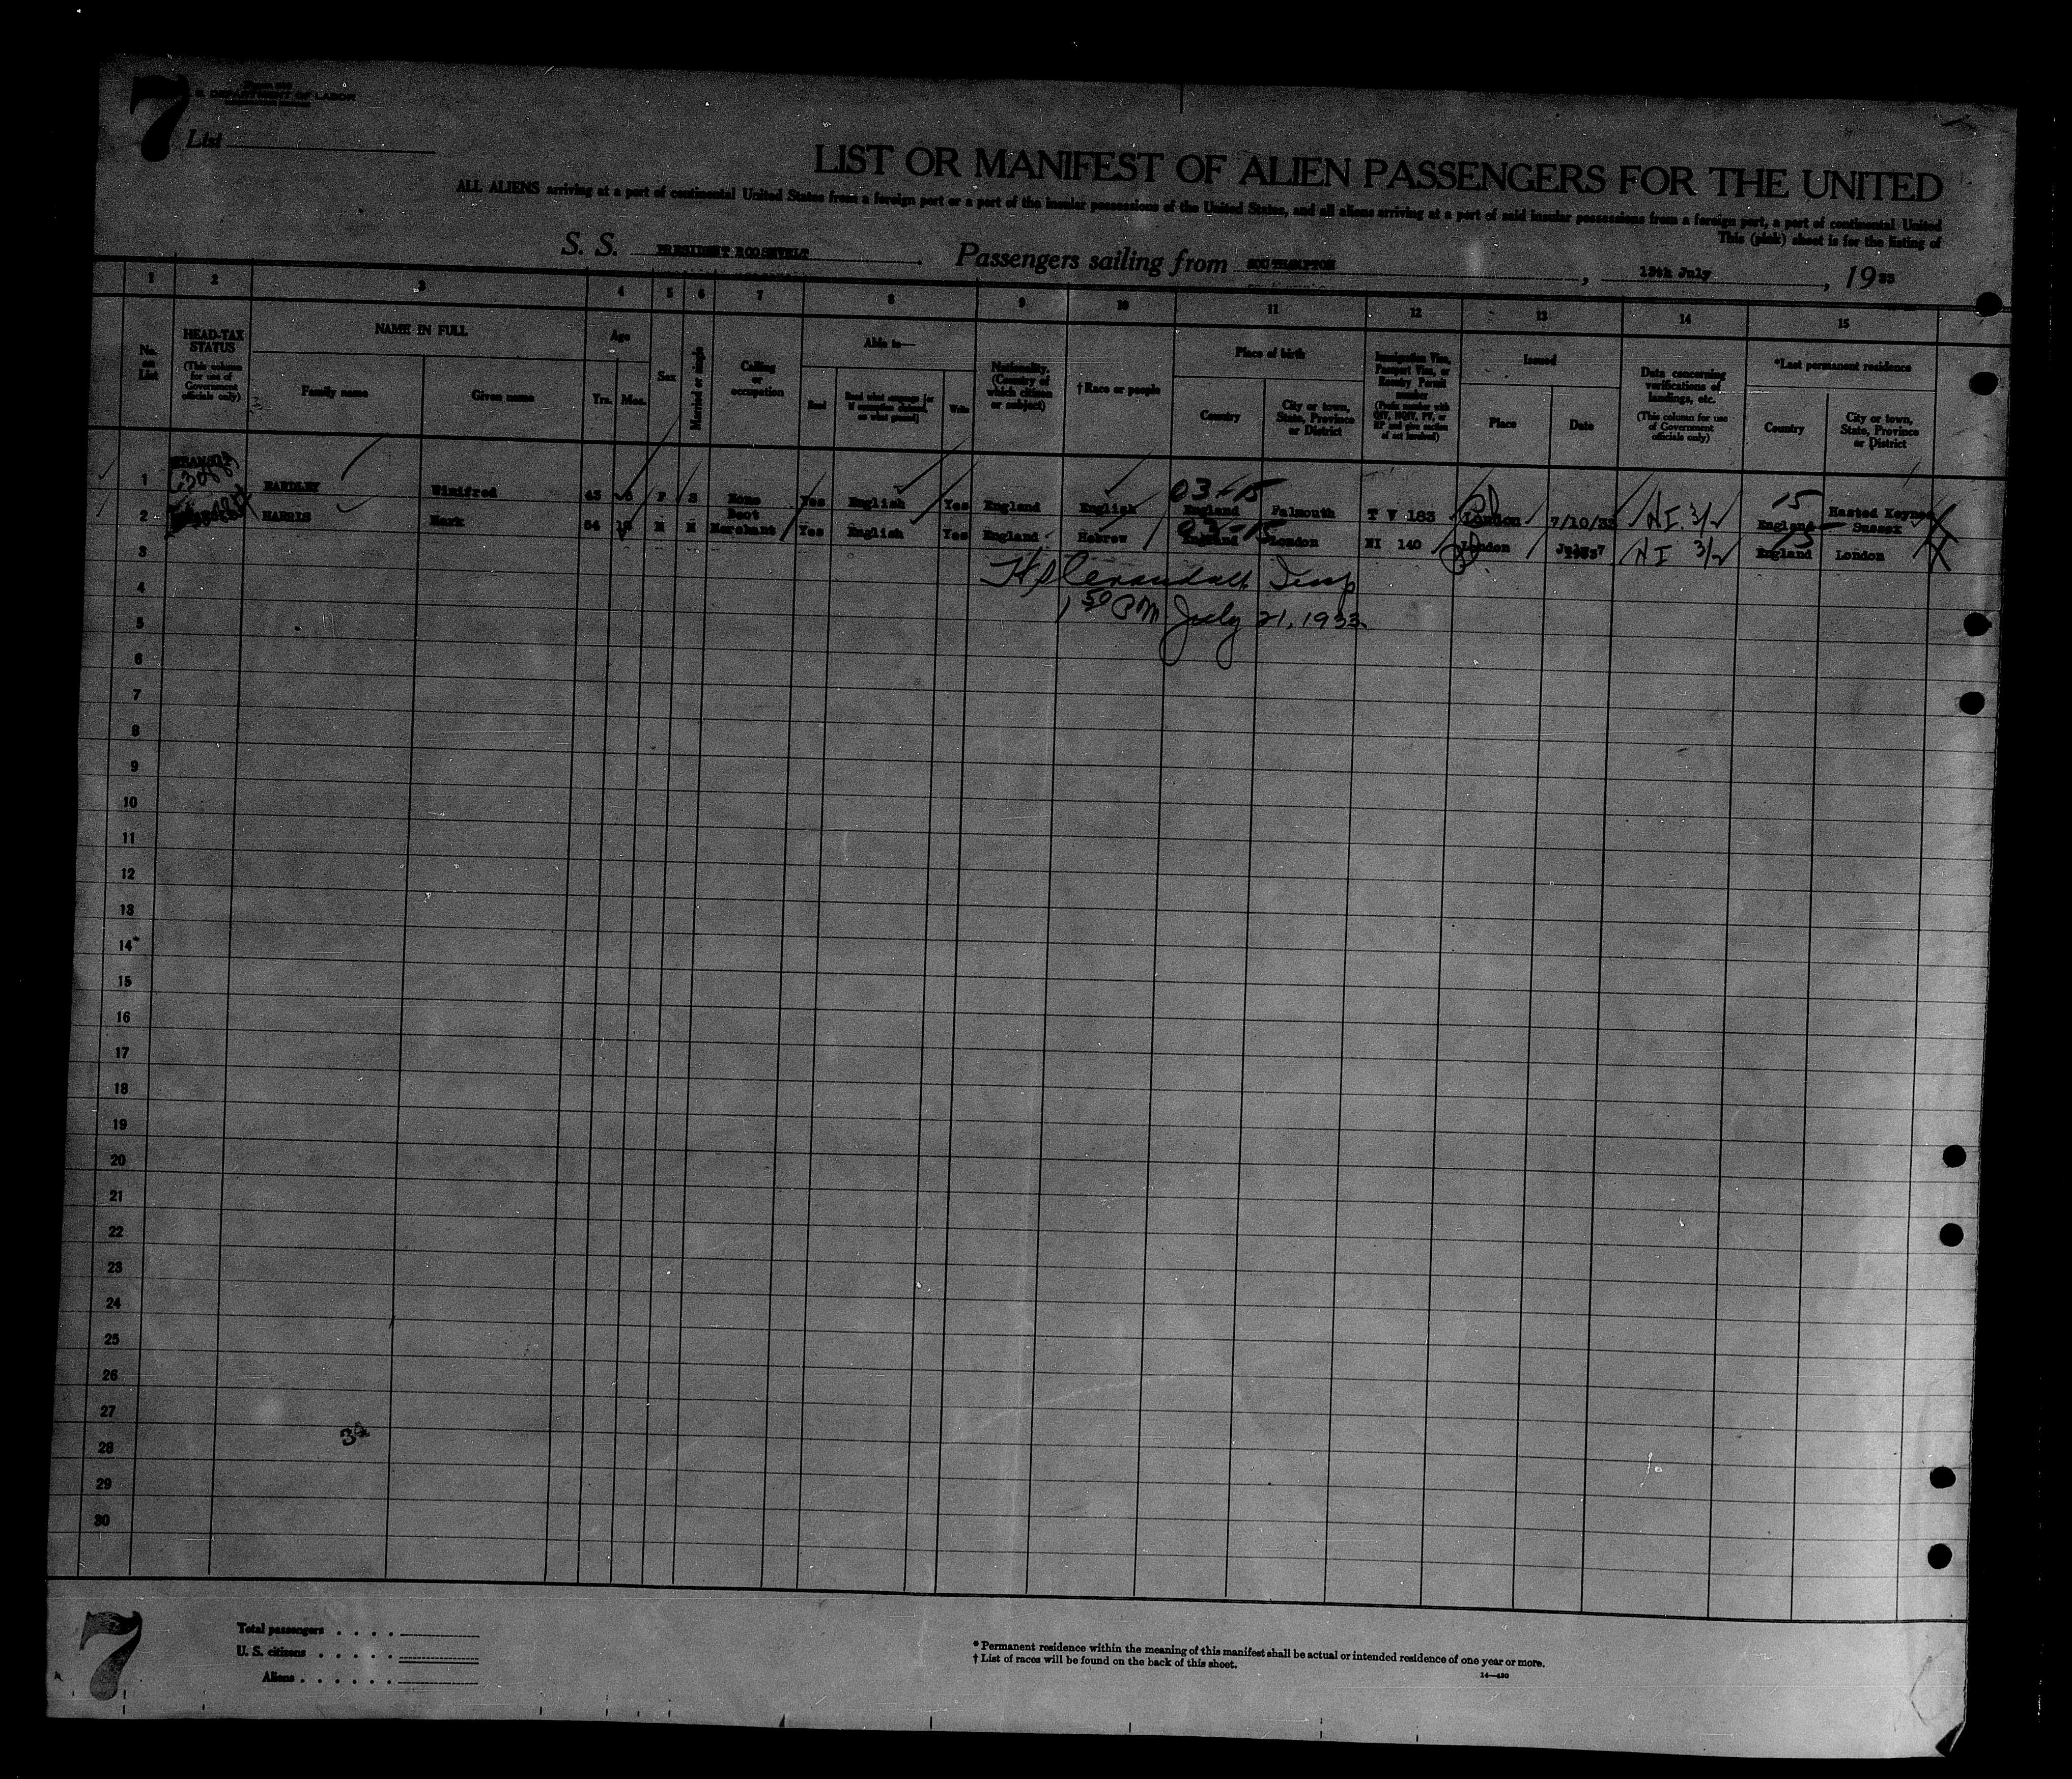 7
U. S. DEPARTMENT OF LABOR
List
LIST OR MANIFEST OF ALIEN PASSENGERS FOR THE UNITED
ALL ALIENS arriving at a port of continental United States from a foreign port or a port of the insular possessions of the United States, and all aliens arriving at a port of said insular possessions from a foreign port, a port of continental United
This (pink) sheet is for the listing of
S. S. PRESIDENT ROOSEVELT. Passengers sailing from SOUTHAMPTON, 13th July, 1933
1 2 3 4 5 6 7 8 9 10 11 12 13 14 15
No. on List
HEAD-TAX STATUS (This column for use of Government officials only)
NAME IN FULL
Family name
Given name
Age
Yrs. Mos.
Sex
Married or single
Calling or occupation
Able to—
Read
Read what language [or if exemption claimed, on what ground]
Write
Nationality. (Country of which citizen or subject)
†Race or people
Place of birth
Country
City or town, State, Province or District
Immigration Visa, Passport Visa, or Reentry Permit number (Prefix number with QIV, NQIV, PV, or RP and give section of act involved)
Issued
Place
Date
Data concerning verifications of landings, etc. (This column for use of Government officials only)
*Last permanent residence
Country
City or town, State, Province or District
03-15 15
1 Winifred 43 F S None Yes English Yes England English England Falmouth T V 183 London 7/10/33 NI 3/2 England Hasted Keynes Sussex
03-15 15
2 HARRIS Mark 54 M M Boot Merchant Yes English Yes England Hebrew England London NI 140 London NI 3/2 England London
3
4
1 50 PM July 21, 1933
5
6
7
8
9
10
11
12
13
14
15
16
17
18
19
20
21
22
23
24
25
26
27
28
29
30
7
Total passengers
U. S. citizens
Aliens
* Permanent residence within the meaning of this manifest shall be actual or intended residence of one year or more.
† List of races will be found on the back of this sheet.
14—430